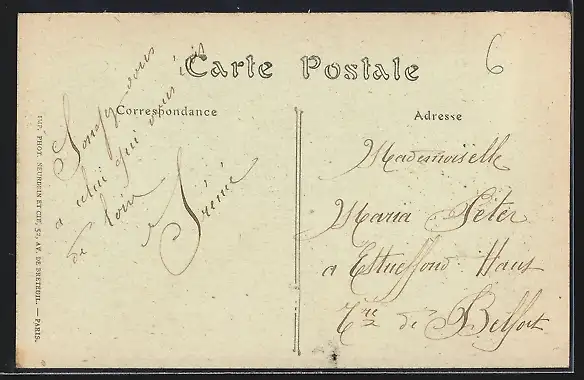 Carte Postale
6
Correspondance
Adresse
Songez-vous
a celui qui vous écrit
de loin
Irénée
Mademoiselle
Maria Peter
a Estueffond Haut
Tre de Belfort
IMP. PHOT. NEURDEIN ET CIE, 52, AV. DE BRETEUIL. — PARIS.